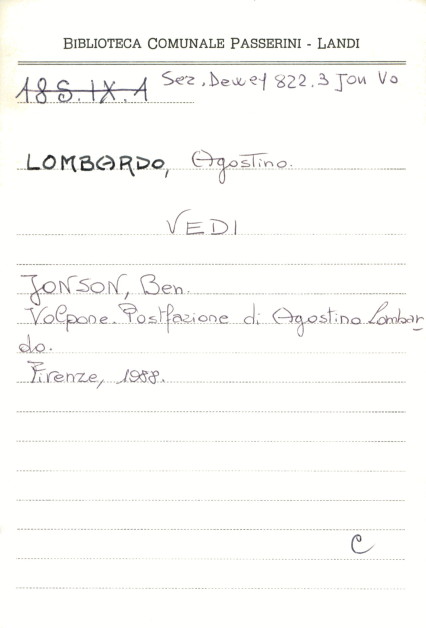 BIBLIOTECA COMUNALE PASSERINI - LANDI
18S.IX.1 Sez. Dewey 822.3 Jon Vo
LOMBARDO, Agostino.
VEDI
JONSON, Ben.
Volpone. Postfazione di Agostino Lombar
do.
Firenze, 1988.
C